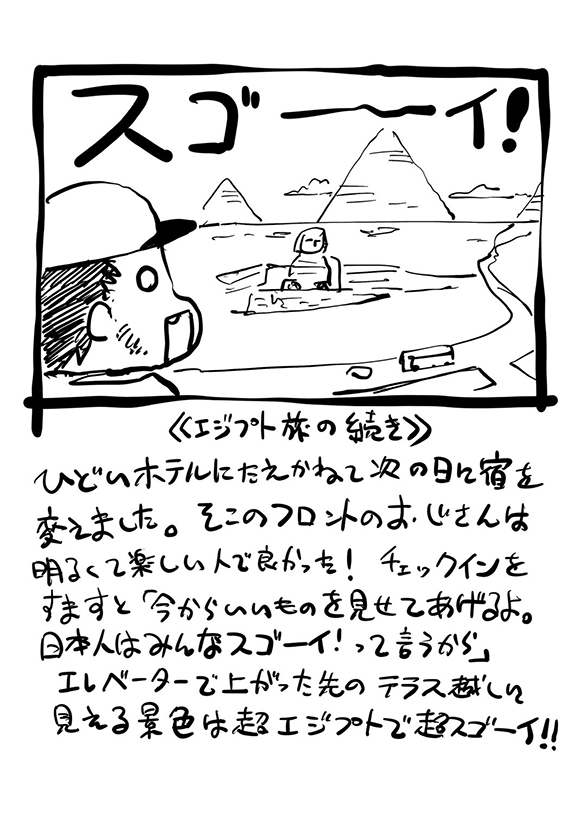 スゴーイ!
《エジプト旅の続き》
ひどいホテルにたえかねて次の日に宿を
変えました。そこのフロントのおじさんは
明るくて楽しい人で良かった! チェックインを
すますと「今からいいものを見せてあげるよ。
日本人はみんなスゴーイ!って言うから」
エレベーターで上がった先のテラス越しに
見える景色は超エジプトで超スゴーイ!!